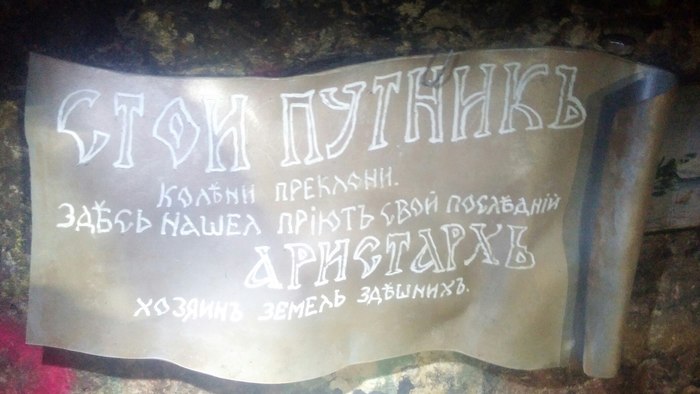 СТОИ ПУТНИКЪ
КОЛѢНИ ПРЕКЛОНИ.
ЗДѢСЬ НАШЕЛ ПРІЮТЪ СВОЙ ПОСЛѢДНІЙ
АРИСТАРХЪ
ХОЗЯИНЪ ЗЕМЕЛЬ ЗДѢШНИХЪ.